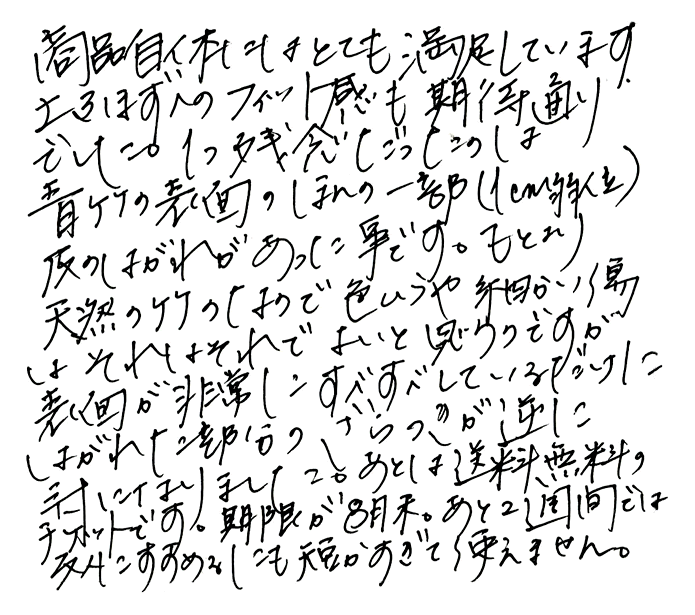 商品自体にはとても満足しています。
土ふまずへのフィット感も期待通り
でした。1つ残念だったのは
青竹の表面のほんの一部(1cm弱位)
皮のはがれがあった事です。もともと
天然の竹のものて色いろや細かい傷
はそれはそれでよいと思うのですが
表面が非常にすべすべしているだけに
はがれた部分のざらつきが逆に
気になりました。あとは送料無料の
チケットです。期限が8月末。あと2週間では
友人にすすめるにも短かすぎて使えません。